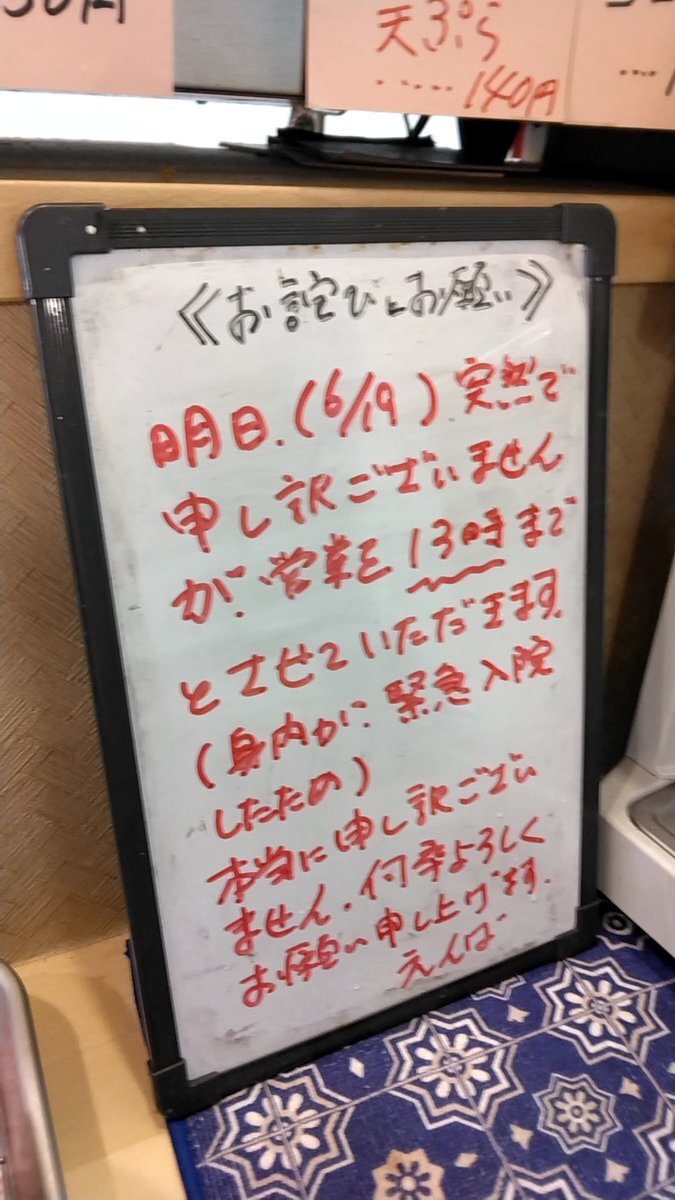 50円
天ぷら
……140円
《お詫びとお願い》
明日、(6/19)突然で
申し訳ございません
が、営業を13時まで
とさせていただきます。
(身内が、緊急入院
したため)
本当に申し訳ござい
ません。何卒よろしく
お願い申し上げます。
えんば